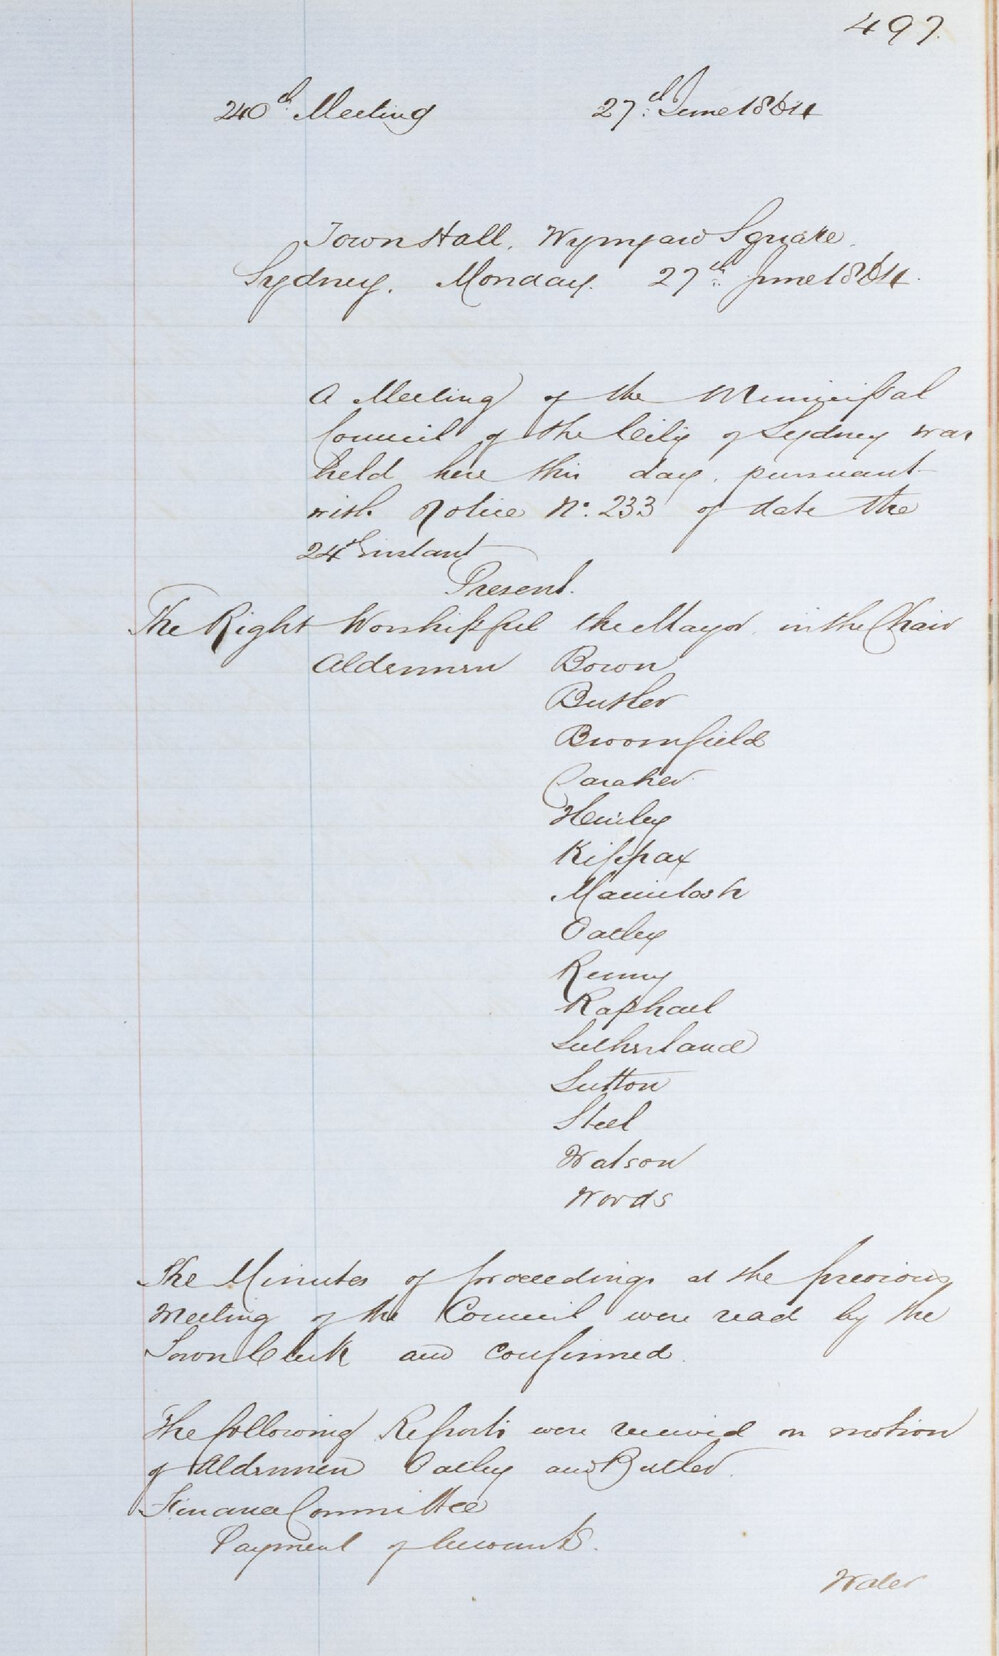 497.
240th Meeting 27th June 1864
Town Hall, Wynyard Square.
Sydney, Monday. 27th June 1864.
A Meeting of the Municipal
Council of the City of Sydney was
held here this day, pursuant
with Notice No. 233 of date the
24th instant
Present.
The Right Worshipful the Mayor in the Chair
Aldermen Bown
Butler
Broomfield
Caraher
Hurley
Kippax
Macintosh
Oatley
Renny
Raphael
Sutherland
Sutton
Steel
Watson
Woods
The Minutes of proceedings at the previous
Meeting of the Council were read by the
Town Clerk and confirmed.
The following Reports were received on motion
of Aldermen Oatley and Butler.
Finance Committee
Payment of Accounts.
Water